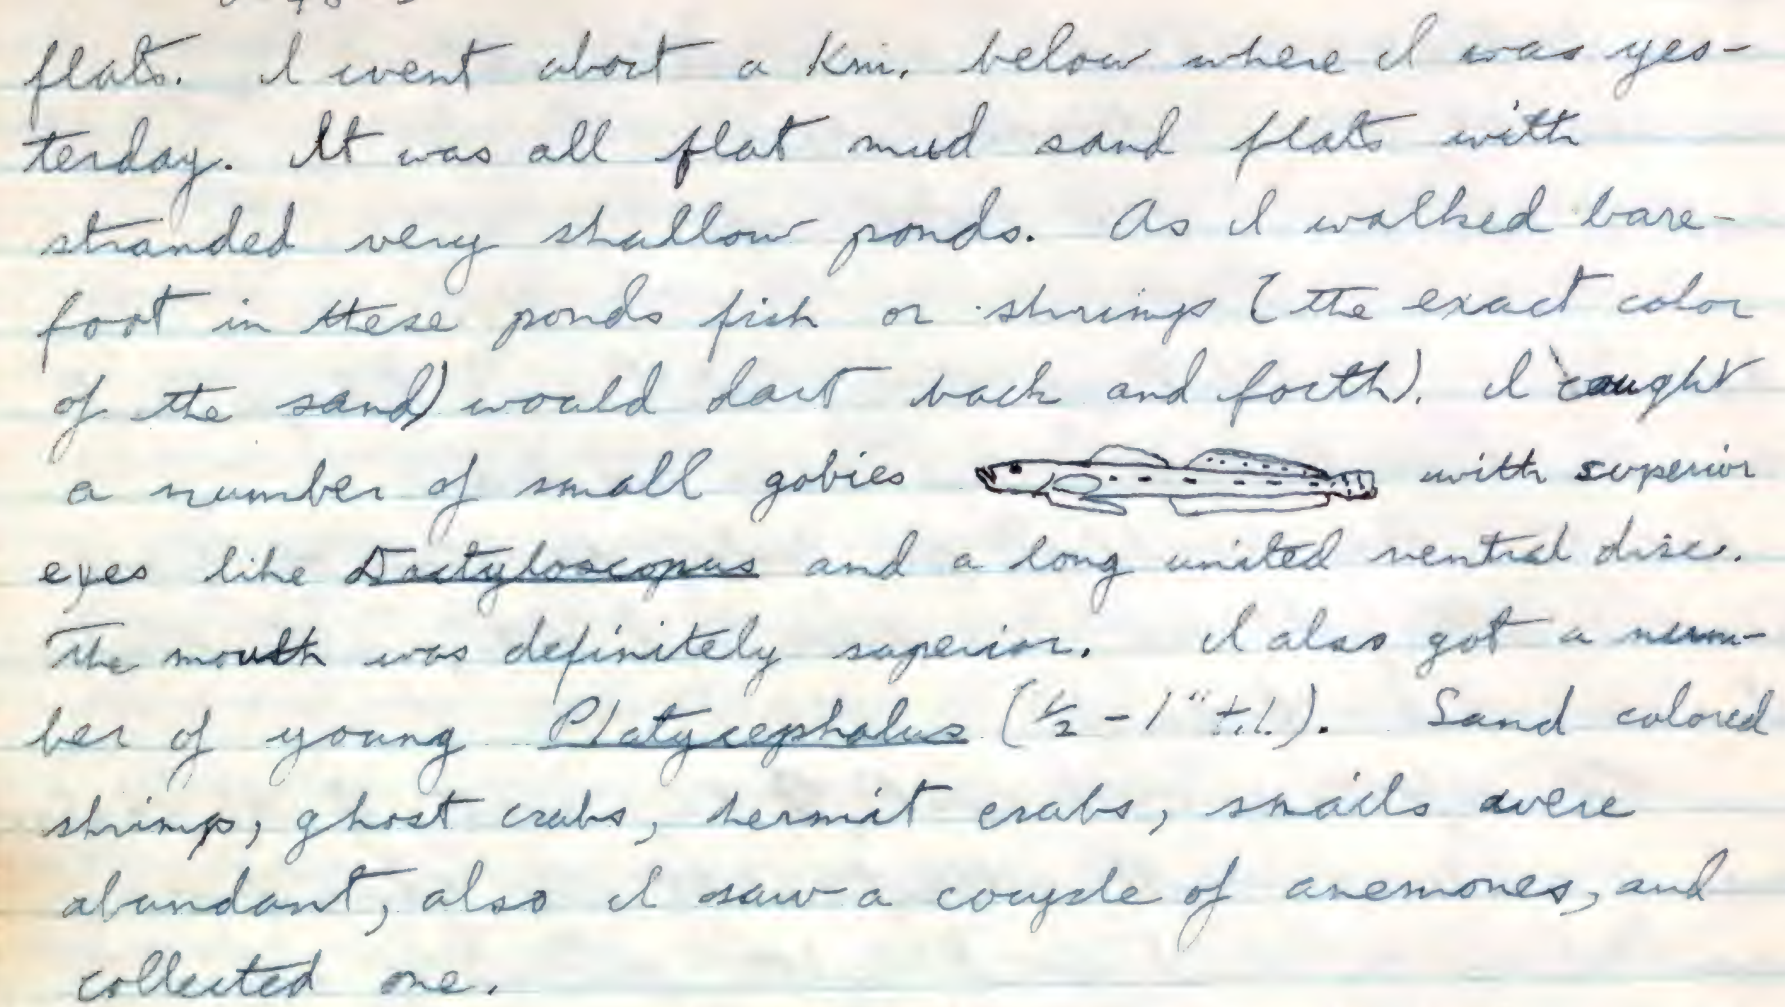 flats. I went about a Km. below where I was yes-
terday. It was all flat mud sand flats with
stranded very shallow ponds. As I walked bare-
foot in these ponds fish or shrimps (the exact color
of the sand) would dart back and forth). I caught
a number of small gobies with superior
eyes like Dactyloscopus and a long united ventral disc.
The mouth was definitely superior. I also got a num-
ber of young Platycephalus (½ - 1" t.l.). Sand colored
shrimp, ghost crabs, hermit crabs, snails were
abundant, also I saw a couple of anemones, and
collected one.